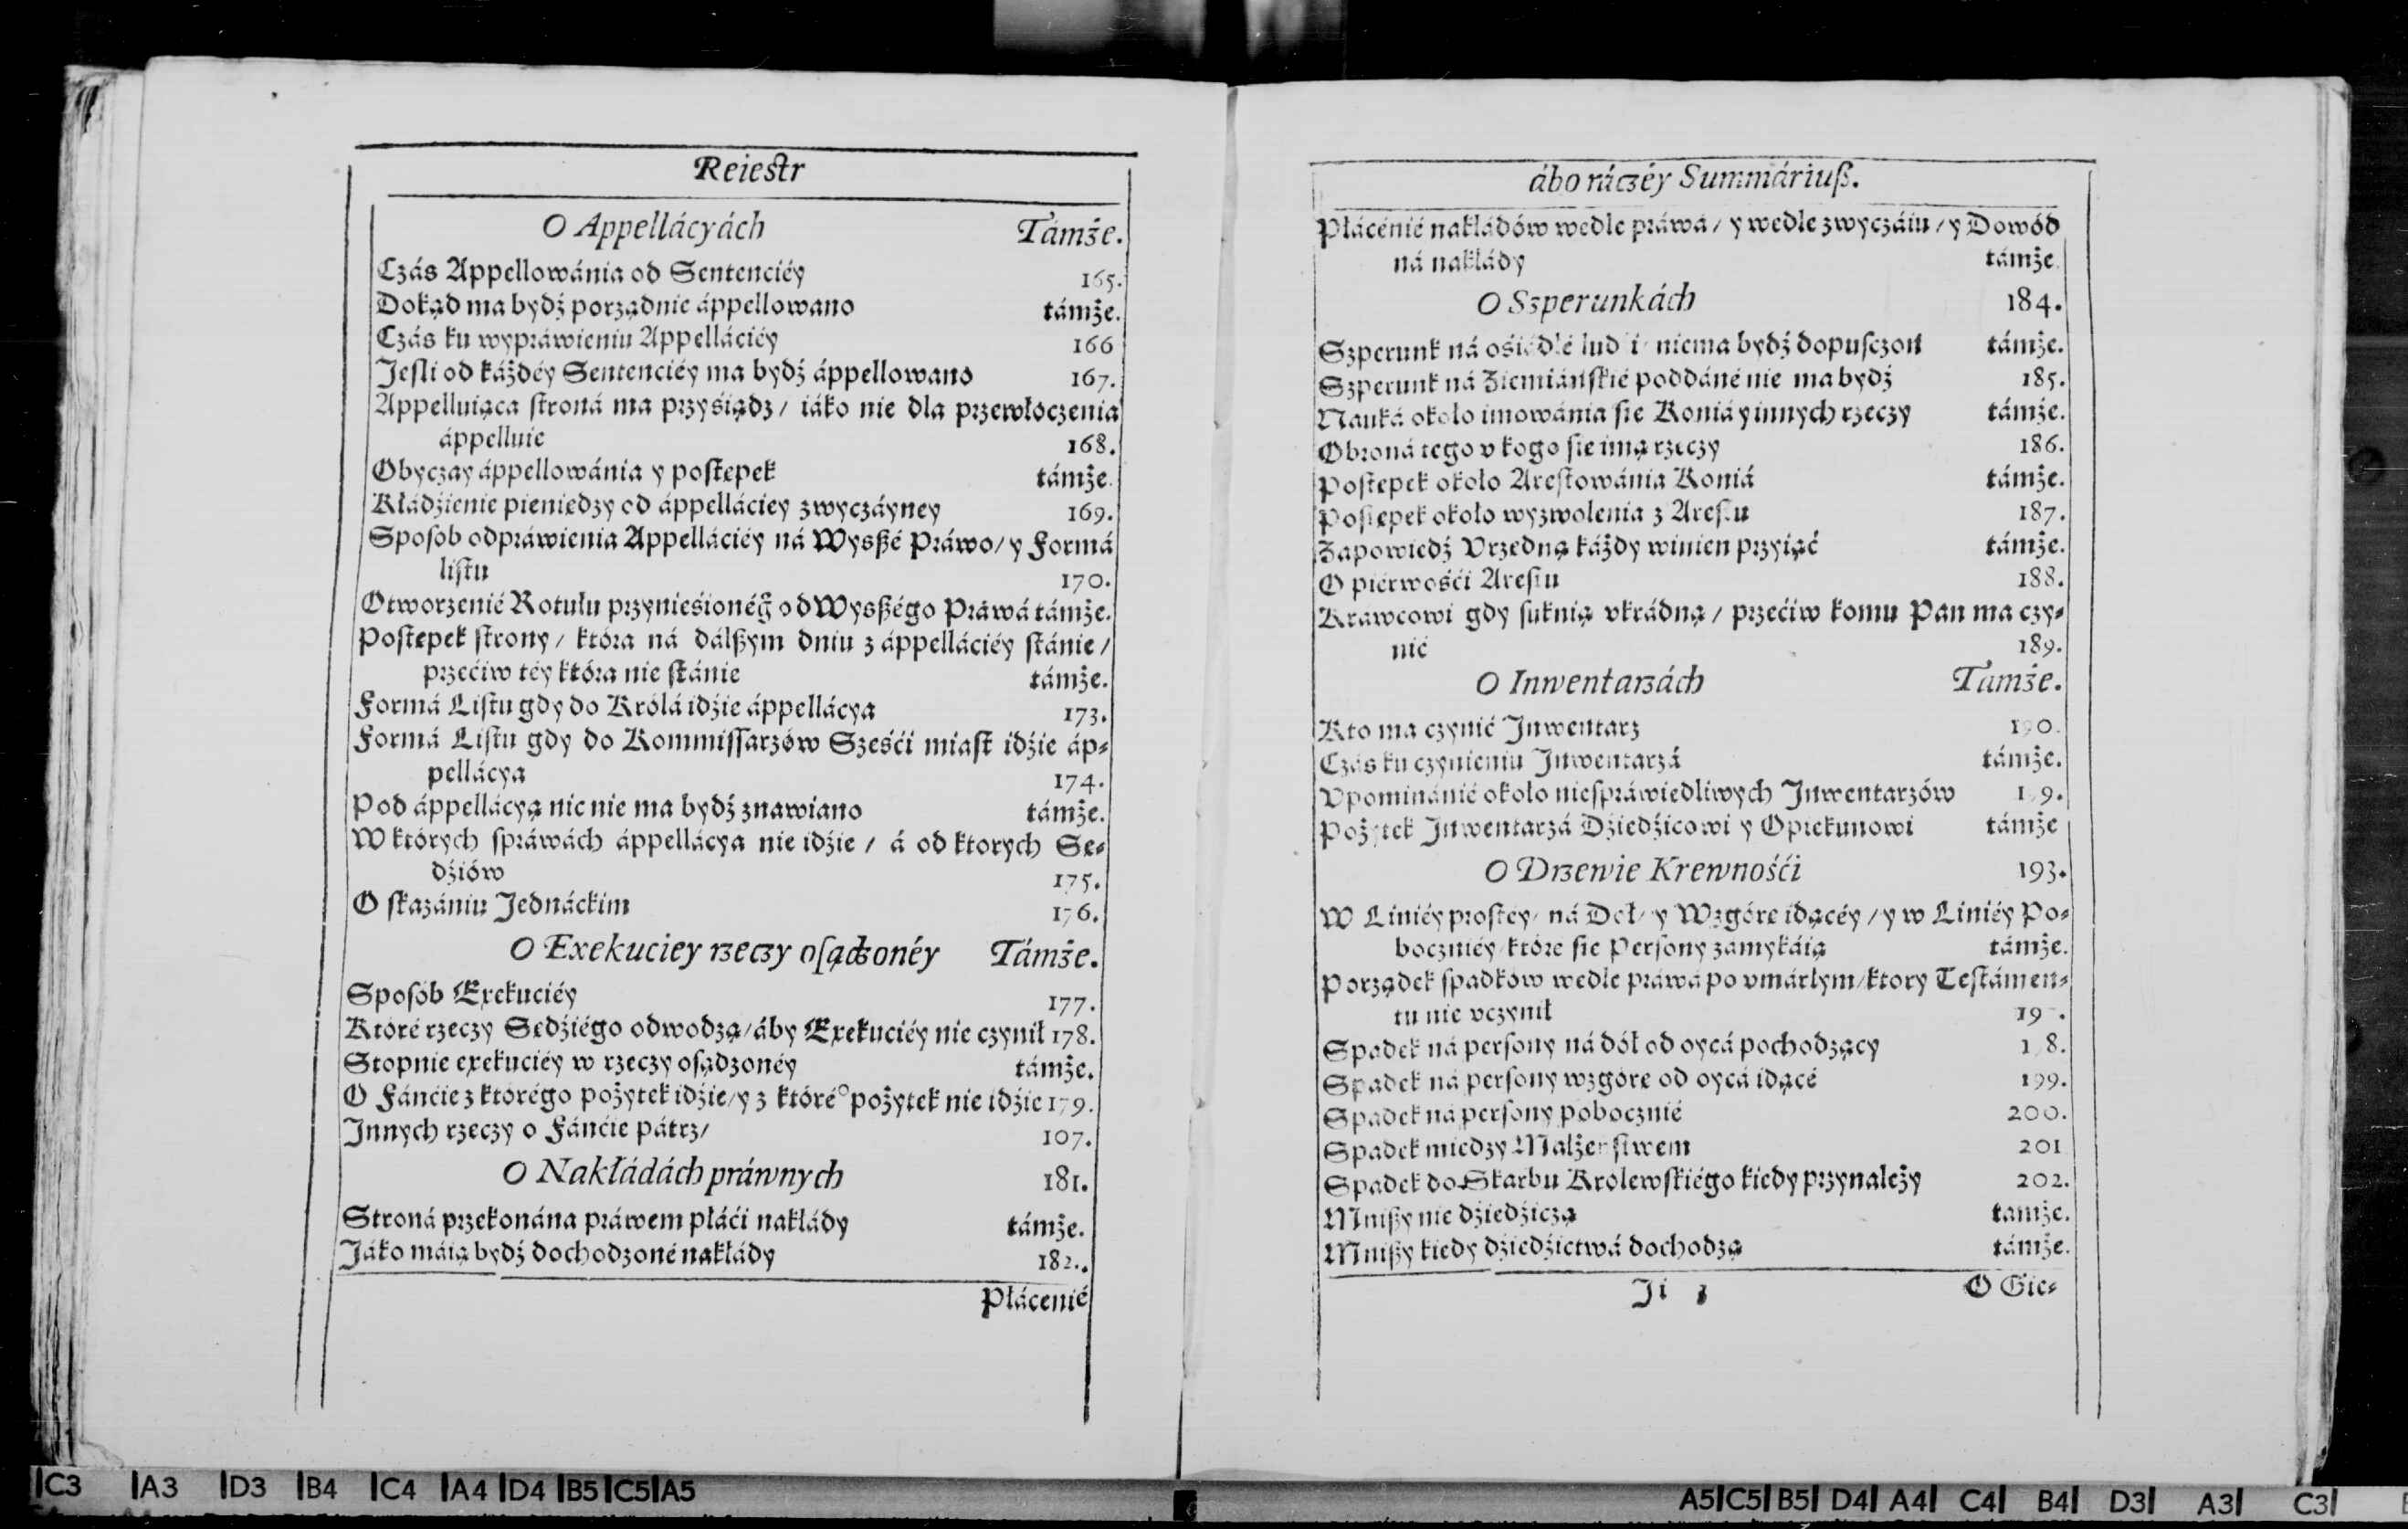 Reiestr
O Appellácyách Támże.
Czás Appellowánia od Sentenciéy 165.
Dokąd ma bydź porządnie áppellowano támże.
Czás ku wypráwieniu Appelláciéy 166
Jeſli od káżdéy Sentenciéy ma bydź áppellowano 167.
Appelluiąca ſtroná ma przyśiądz / iáko nie dla przewłoczenia
áppelluie 168.
Obyczay áppellowánia y poſtępek támże.
Kłádźienie pieniedzy od áppelláciey zwyczáyney 169.
Spoſob odpráwienia Appelláciéy ná Wyſßé Práwo / y Formá
liſtu 170.
Otworzenié Rotułu przynieśionég̃ od Wyſßégo Práwá támże.
Poſtępek ſtrony / która ná dálßym dniu z áppelláciéy ſtánie /
przećiw téy która nie ſtánie támże.
Formá Liſtu gdy do Królá idźie áppellácya 173.
Formá Liſtu gdy do Kommiſſarzów Sześći miaſt idźie áp⸗
pellácya 174.
Pod áppellácyą nic nie ma bydź znawiano támże.
W których ſpráwách áppellácya nie idźie / á od ktorych Se⸗
dźiów 175.
O ſkazániu Jednáckim 176.
O Exekuciey rzeczy oſądzonéy Támże.
Sposób Exekuciéy 177.
Któré rzeczy Sedźiégo odwodzą / áby Exekuciéy nie czynił 178.
Stopnie exekuciéy w rzeczy oſądzonéy támże.
O Fánćie z którégo pożytek idźie / y z któréº pożytek nie idźie 179.
Innych rzeczy o Fánćie pátrz / 107.
O Nakłádách práwnych 181.
Stroná przekonána práwem płáći nakłády támże.
Jáko máią bydź dochodzoné nakłády 182.
Płácenié
ábo ráczéy Summáriuß.
Płácénié nakłádów wedle práwá / y wedle zwyczáiu / y Dowód
ná nakłády támże.
O Szperunkách 184.
Szperunk ná niema bydź dopuſczon támże.
Szperunk ná Ziemiáńſkié poddáné nie ma bydź 185.
Nauká około imowánia ſie Koniá y innych rzeczy támże.
Obroná tego v kogo ſie imą rzeczy 186.
Poſtępek około Areſtowánia Koniá támże.
Poſtępek około wyzwolenia z Areſtu 187.
Zapowiedź Vrzedną káżdy winien przyiąć támże.
O piérwośći Areſtu 188.
Krawcowi gdy ſuknią vkrádną / przećiw komu Pan ma czy⸗
nić 189.
O Inwentarzách Tamże.
Kto ma czynić Inwentarz 190.
Czás ku czynieniu Inwentarzá támże.
Vpominánié około nieſpráwiedliwych Inwentarzów
Pożytek Inwentarzá Dźiedźicowi y Opiekunowi támże
O Drzewie Krewnośći 193.
W Liniéy proſtey / ná Doł / y Wzgóre idącéy / y w Liniéy Po⸗
boczniéy / któré ſie Perſony zámykáią támże.
Porządek ſpadków wedle práwá po vmárłym / ktory Teſtámen⸗
tu nie vczynił
Spadek ná perſony ná dół od oycá pochodzący
Spadek ná perſony wzgóre od oycá idącé 199.
Spadek ná perſony pobocznié 200.
Spadek miedzy Małżeńſtwem 201
Spadek do Skarbu Królewſkiégo kiedy przynależy 202.
Mnißy nie dźiedźiczą tamże.
Mnißy kiedy dźiedźictwá dochodzą támże.
Ji O Gie⸗
C3 A3 D3 B4 C4 A4 D4 B5 C5 A5
A5 C5 B5 D4 A4 C4 B4 D3 A3 C3